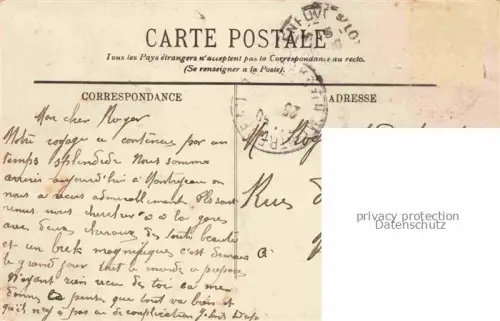 CARTE POSTALE
Tous les Pays étrangers n'acceptent pas la Correspondance au recto.
(Se renseigner à la Poste).
CORRESPONDANCE
ADRESSE
Mon cher Roger
Notre voyage a continué par un
temps splendide Nous sommes
arrivés aujourd'hui à
nous a admirablement Ils sont
venus nous chercher à la gare
avec deux chevaux de toute beauté
et un brek magnifique c'est demain
le grand jour tout le monde se prépare
N'ayant rien reçu de toi ça me
donne à penser que tout va bien et
qu'il n'y a pas de complication
Rog
Rue
à
privacy protection
Datenschutz